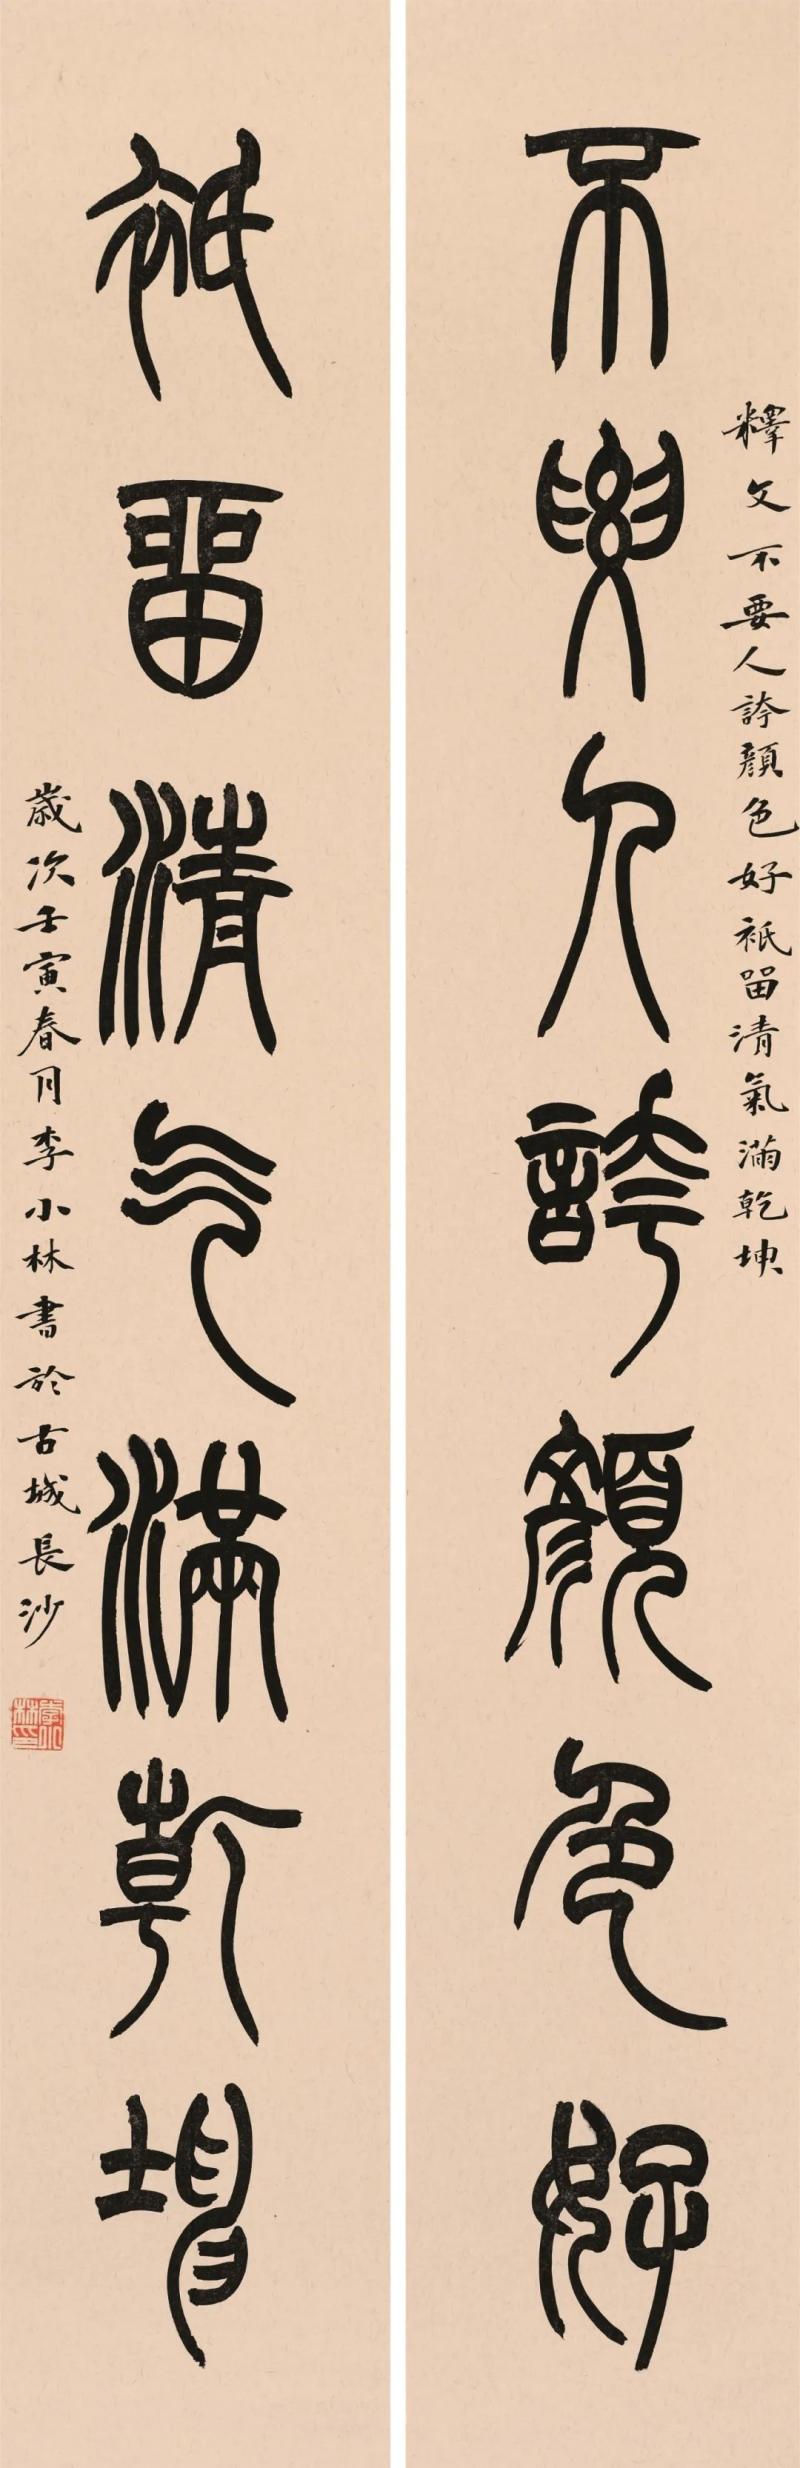 不要人誇顏色好
釋文不要人誇顏色好祇畱清氣滿乾坤
祇畱清气滿乾坤
歲次壬寅春月李小林書於古城長沙
李小林印